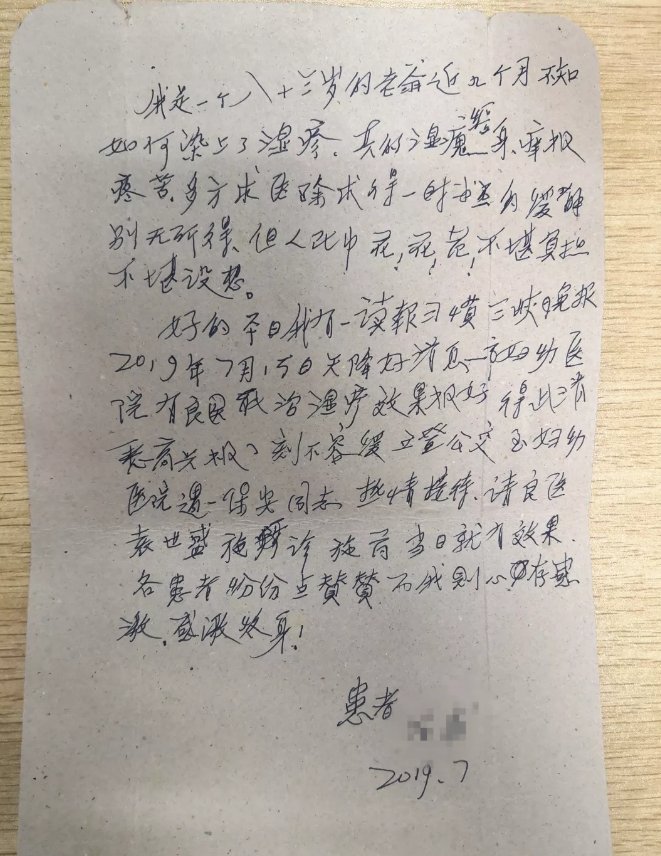 我是一个八十三岁的老翁近九个月不知
如何染上了湿疹、真的湿魔缠身、痒极
疼苦、多方求医除求得一时的缓解
别无所得、但人比巾花!花!花!不堪负担
不堪设想。
好的平日我有一读报习惯三峡晚报
2019年7月15日天降好消息一市妇幼医
院有良医取治湿疹效果极好 得此消
息高兴极了刻不容缓立登公交至妇幼
医院遇一保安同志热情接待、请良医
袁世盛施诊施药当日就有效果.
各患者纷纷点赞赞 而我则心存感
激、感激终身!
患者
2019.7